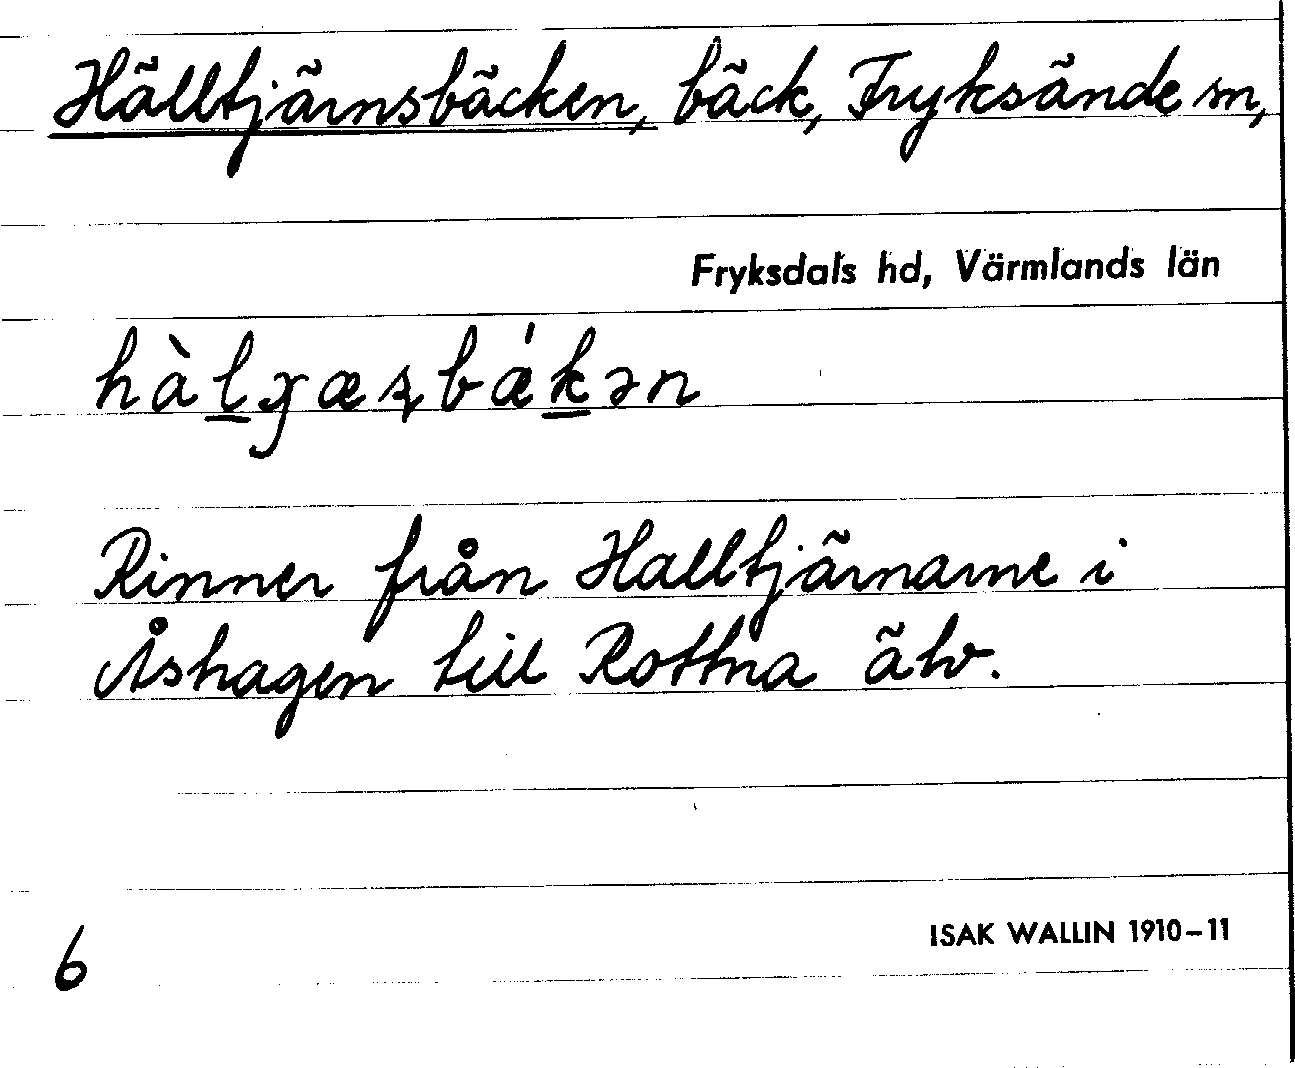 Hälltjärnsbäcken, bäck, Fryksände sn,
Fryksdals hd, Värmlands län
Rinner från Halltjärnarne i
Åshagen till Rottna älv.
6
ISAK WALLIN 1910–11